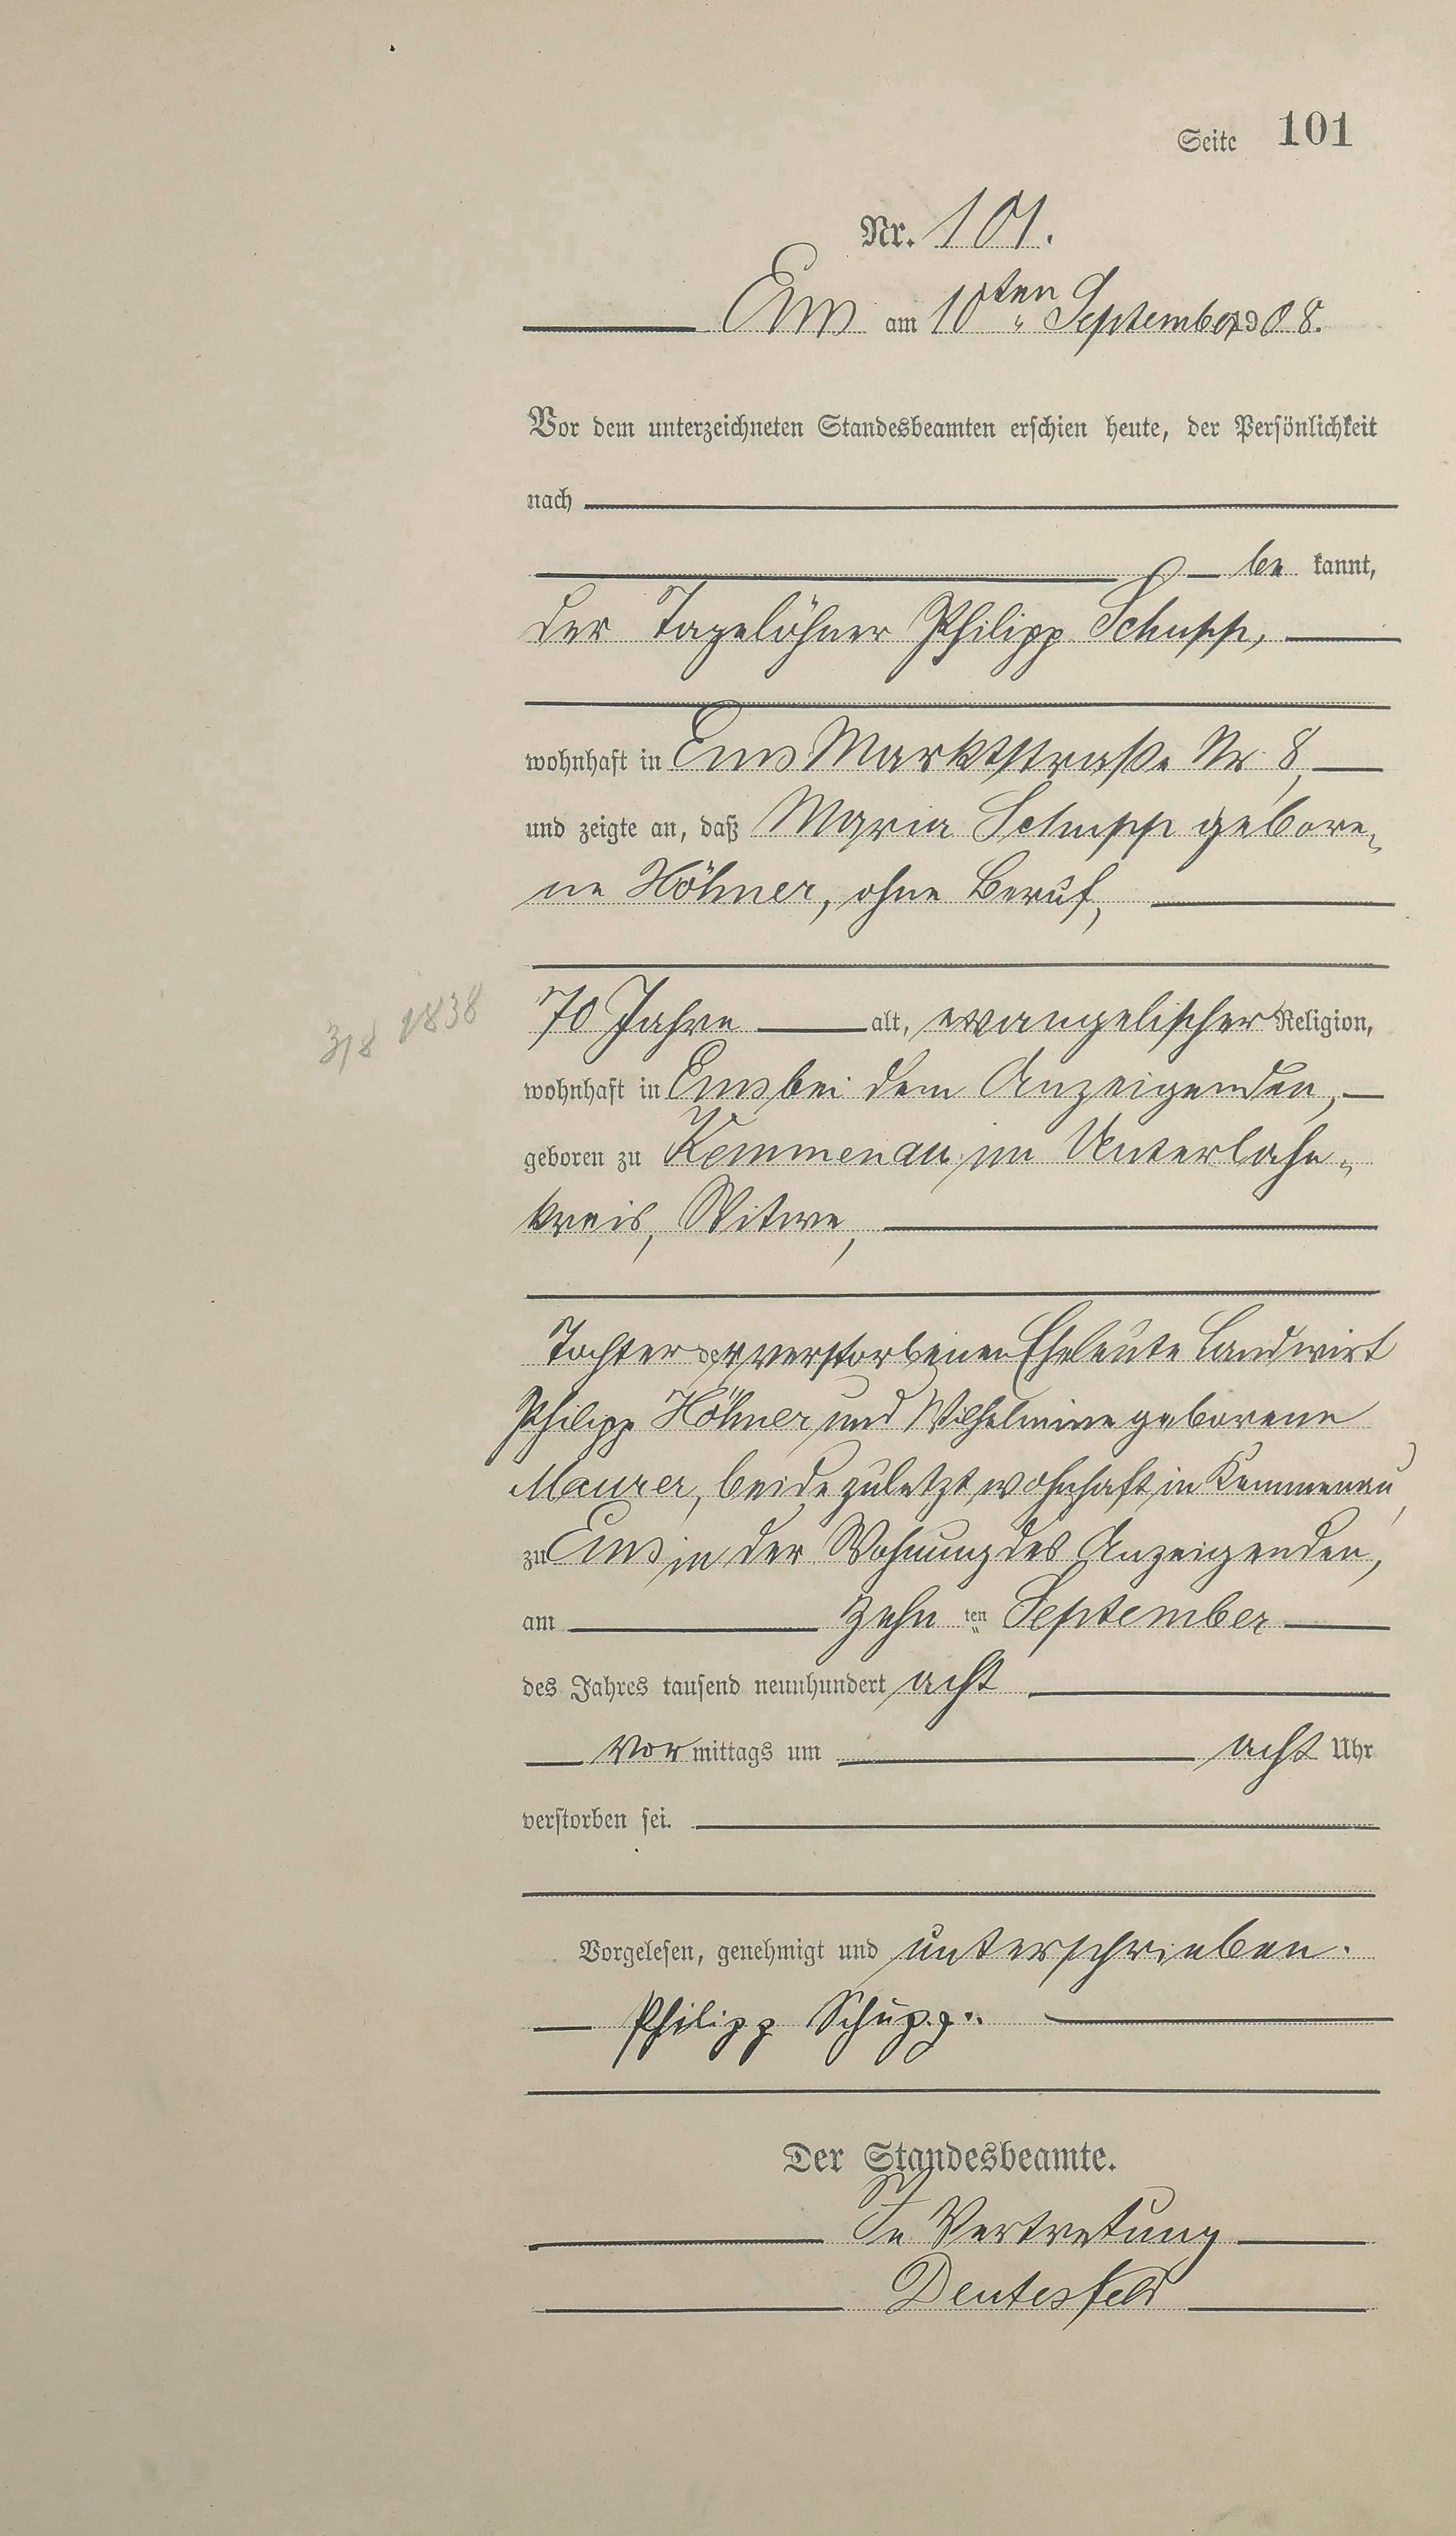 Seite 101
Nr. 101.
Ems am 10ten September 1908.
Vor dem unterzeichneten Standesbeamten erschien heute, der Persönlichkeit
nach
be kannt,
der Tagelöhner Philipp Schupp,
wohnhaft in Ems Marktstraße Nr. 8,
und zeigte an, daß Maria Schupp gebore-
ne Höhner, ohne Beruf,
3/8 1838
70 Jahre alt, evangelischer Religion,
wohnhaft in Ems bei dem Anzeigenden,
geboren zu Kemmenau im Unterlahn-
kreis, Witwe,
Tochter der verstorbenen Eheleute Landwirt
Philipp Höhner und Wilhelmine geborene
Maurer, beide zuletzt wohnhaft in Kemmenau,
zu Ems in der Wohnung des Anzeigenden,
am zehn ten September
des Jahres tausend neunhundert acht
vor mittags um acht Uhr
verstorben sei.
Vorgelesen, genehmigt und unterschrieben.
Philipp Schupp.
Der Standesbeamte.
In Vertretung